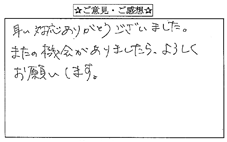 ☆ご意見・ご感想☆
早い対応ありがとうございました。
またの機会がありましたら、よろしく
お願いします。